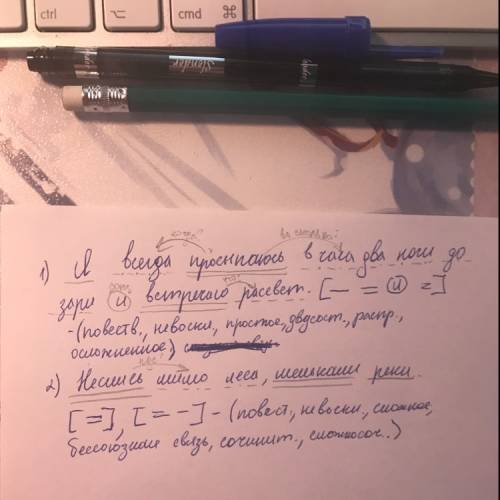 ctrl
⌥
cmd ⌘
Slender
когда?
во сколько?
1) Я всегда просыпаюсь в часа два ночи до
зари и встречаю рассвет. [— = и =]
- (повеств., невоскл., простое, двусост., распр.,
осложненное)
2) Неслись мимо леса, мелькали реки.
[=], [= -] - (повест., невоскл., сложное,
бессоюзная связь, сочинит., сложносоч..)